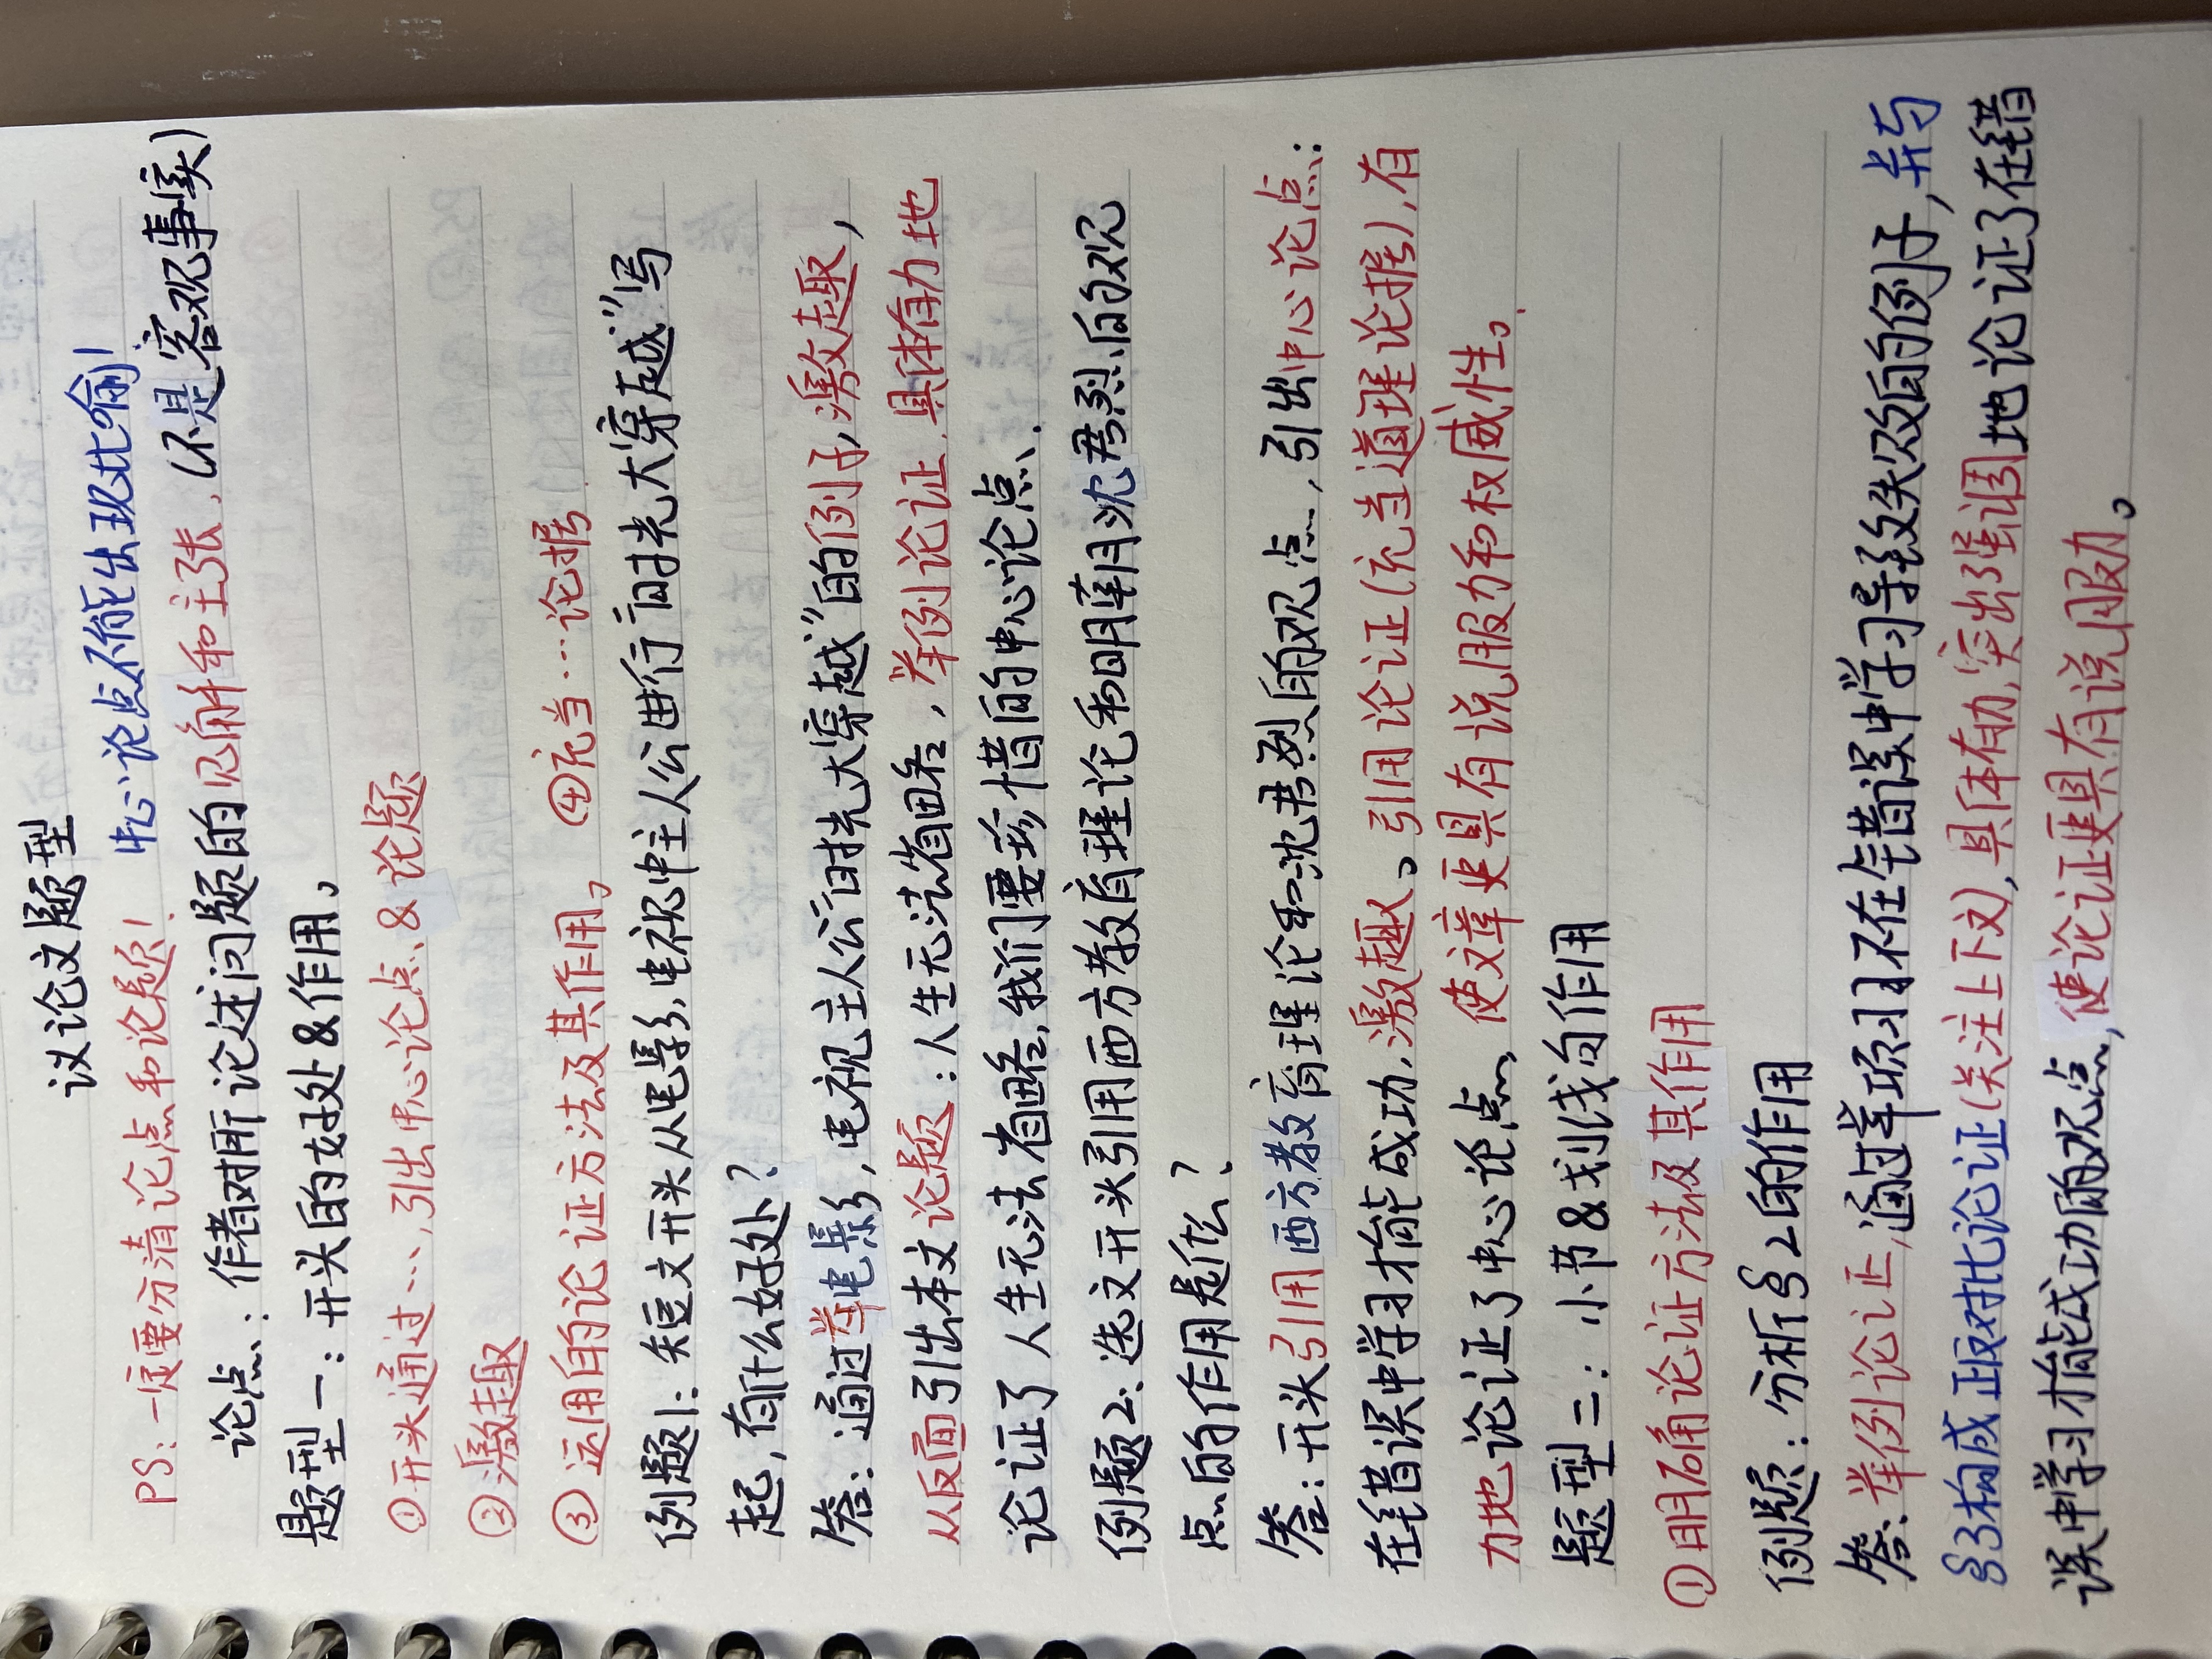 议论文题型
PS:一定要分清论点和论题! 中心论点不能出现比喻!
论点:作者对所论述问题的见解和主张.(不是客观事实)
题型一:开头的好处&作用。
①开头通过…,引出中心论点&论题
②激趣
③运用的论证方法及其作用。 ④充当…论据
例题1:短文开头从电影,电视中主人公进行“时光大穿越”写
起,有什么好处?
答:通过举电影,电视主人公“时光大穿越”的例子,激趣,
从反面引出本文论题:人生无法省略,举例论证,具体有力地
论证了人生无法省略,我们要珍惜的中心论点.
例题2:选文开头引用西方教育理论和明确沈君烈的观
点的作用是什么?
答:开头引用西方教育理论和沈君烈的观点,引出中心论点:
在错误中学习才能成功,激趣。引用论证(充当道理论据),有
力地论证了中心论点,使文章更具有说服力和权威性。
题型二:小节&划线句作用
①明确论证方法及其作用
例题:分析§2的作用
答:举例论证,通过举项羽不在错误中学习导致失败的例子,并与
§3构成正反对比论证(关注上下文),具体有力,突出强调地论证了在错
误中学习才能成功的观点,使论证更具有说服力。